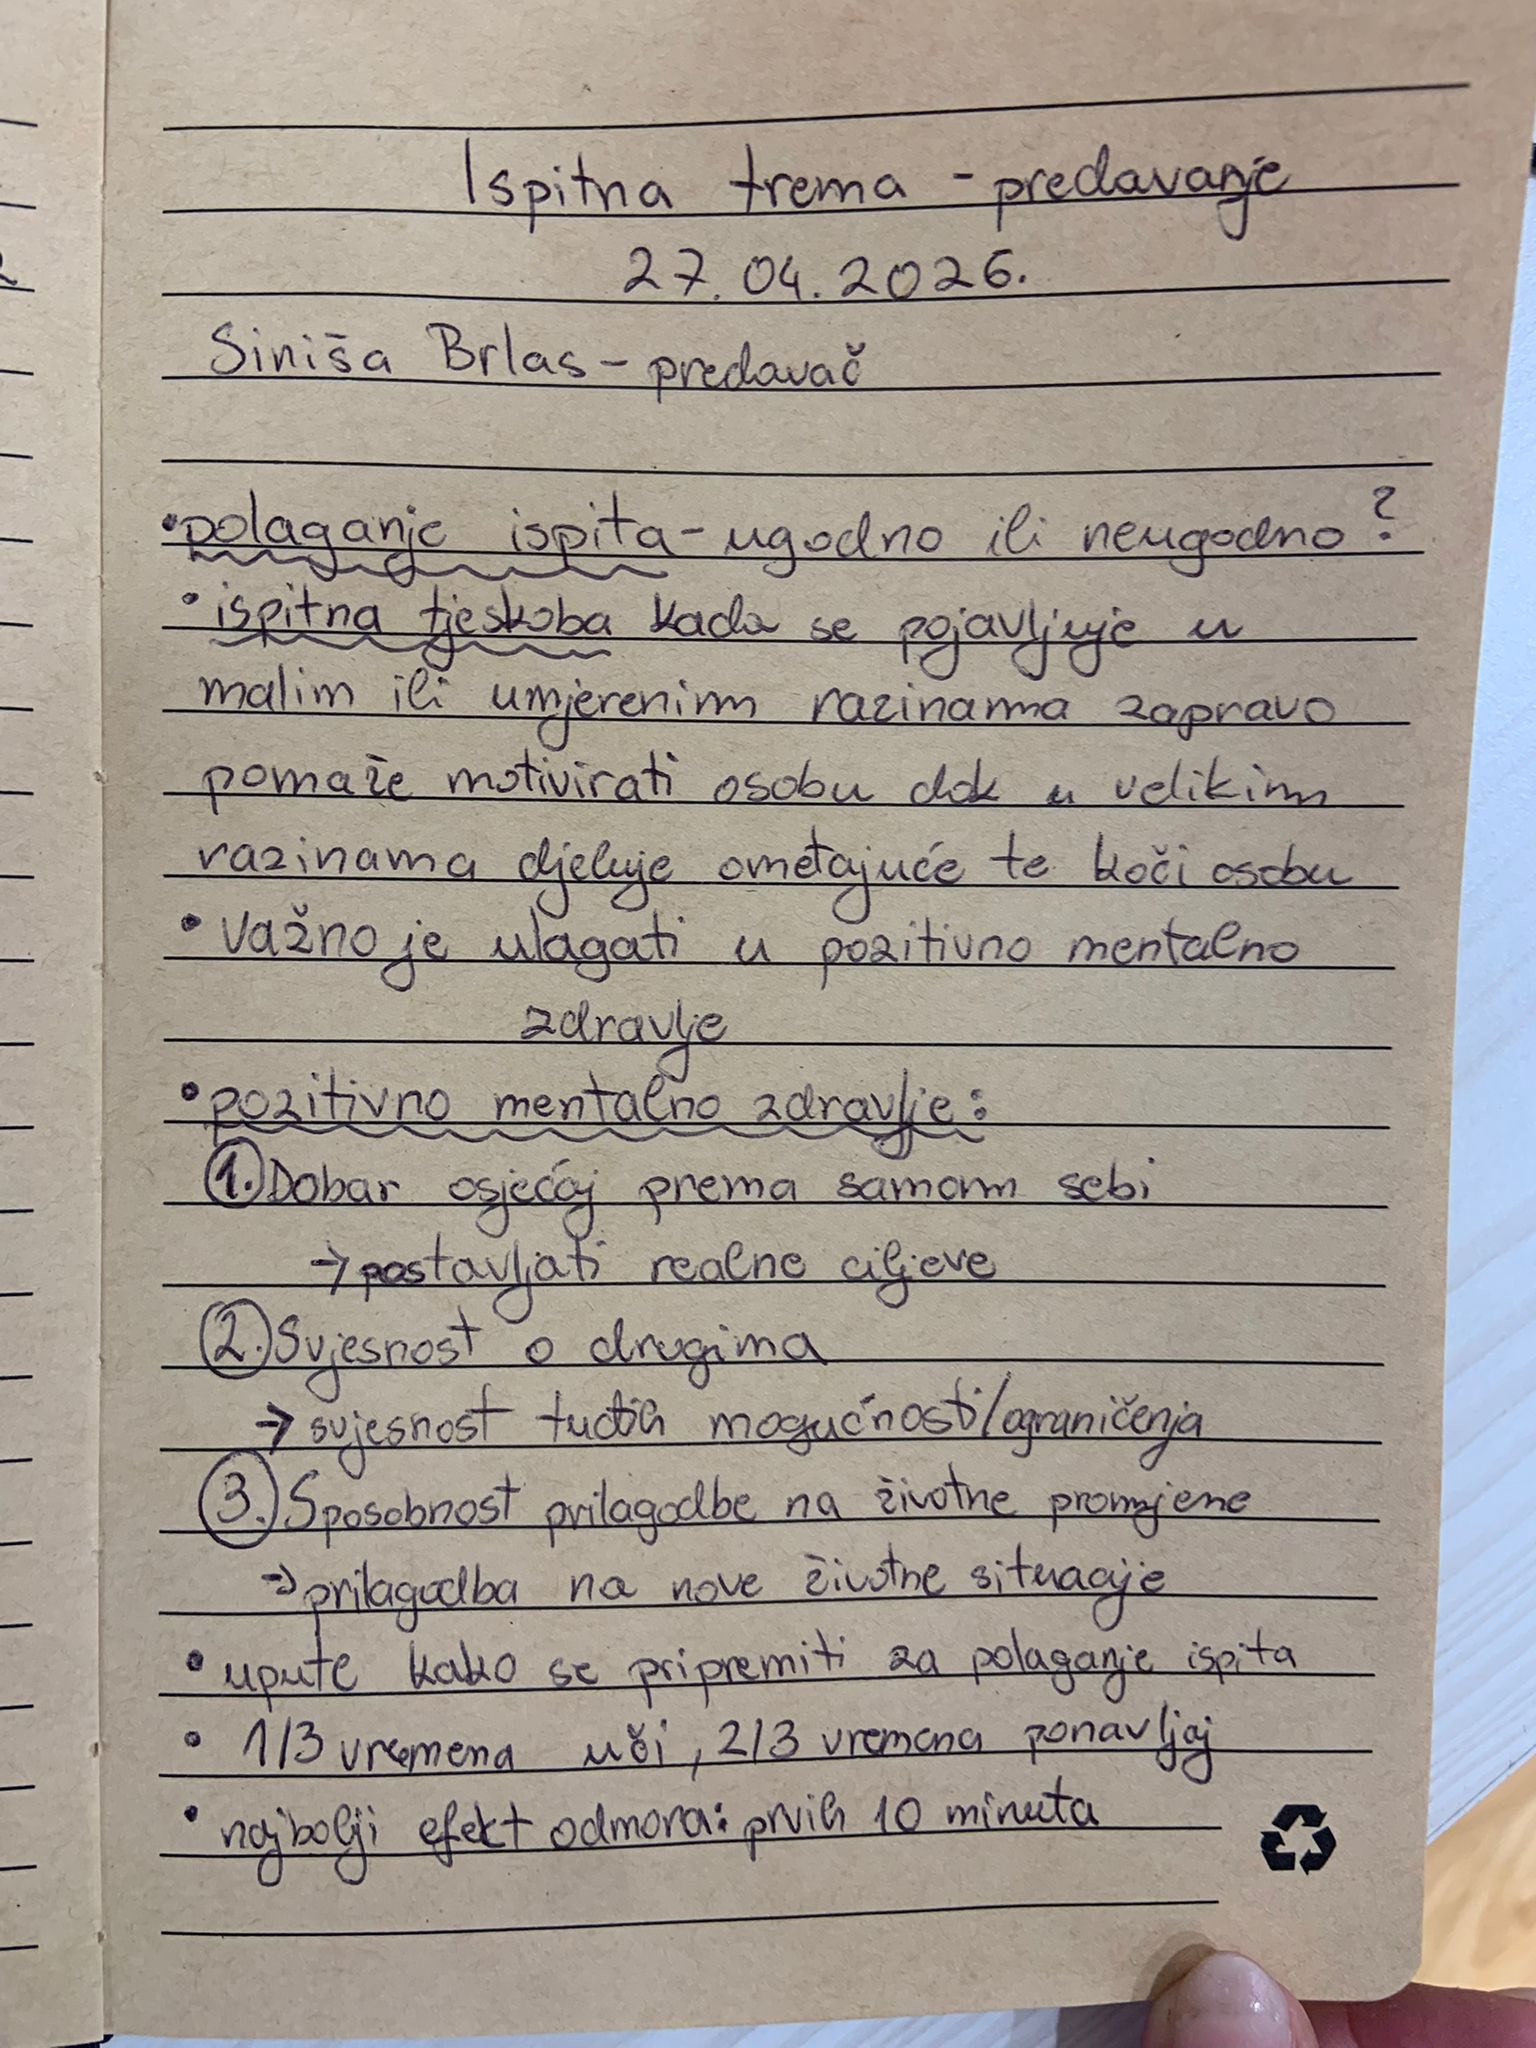 Ispitna trema - predavanje
27.04.2026.
Siniša Brlas - predavač
• polaganje ispita - ugodno ili neugodno?
• ispitna tjeskoba kada se pojavljuje u
malim ili umjerenim razinama zapravo
pomaže motivirati osobu dok u velikim
razinama djeluje ometajuće te koči osobu
• važno je ulagati u pozitivno mentalno
zdravlje
• pozitivno mentalno zdravlje:
1. Dobar osjećaj prema samom sebi
→ postavljati realne ciljeve
2. Svjesnost o drugima
→ svjesnost tuđih mogućnosti/ograničenja
3. Sposobnost prilagodbe na životne promjene
→ prilagodba na nove životne situacije
• upute kako se pripremiti za polaganje ispita
• 1/3 vremena uči, 2/3 vremena ponavljaj
• najbolji efekt odmora: prvih 10 minuta